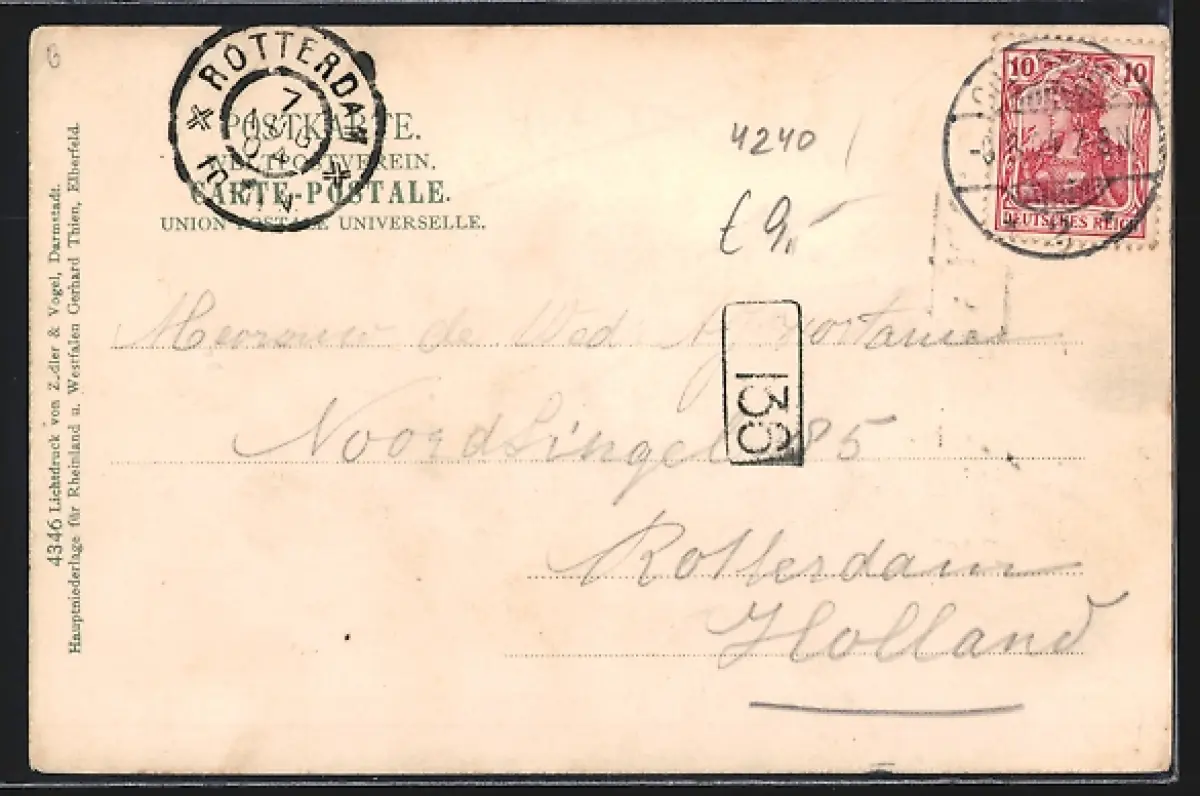 ROTTERDAM
7
AUG
04
10
10
DEUTSCHES REICH
POSTKARTE.
WELTPOSTVEREIN.
CARTE-POSTALE.
UNION POSTALE UNIVERSELLE.
4240
£ 9,-
Mevrouw de Wed
136
Noordsingel 85
Rotterdam
Holland
4346 Lichtdruck von Zedler & Vogel, Darmstadt.
Hauptniederlage für Rheinland u. Westfalen Gerhard Thien, Elberfeld.